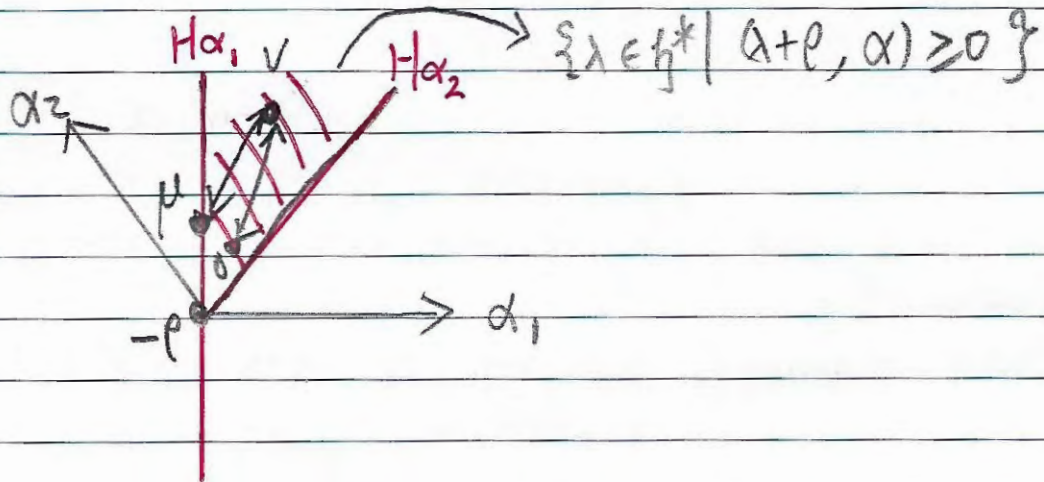 Hα₁ ν Hα₂ {λ ∈ 𝔥* | (λ+ρ, α) ≥ 0}
α₂
μ
0
-ρ α₁